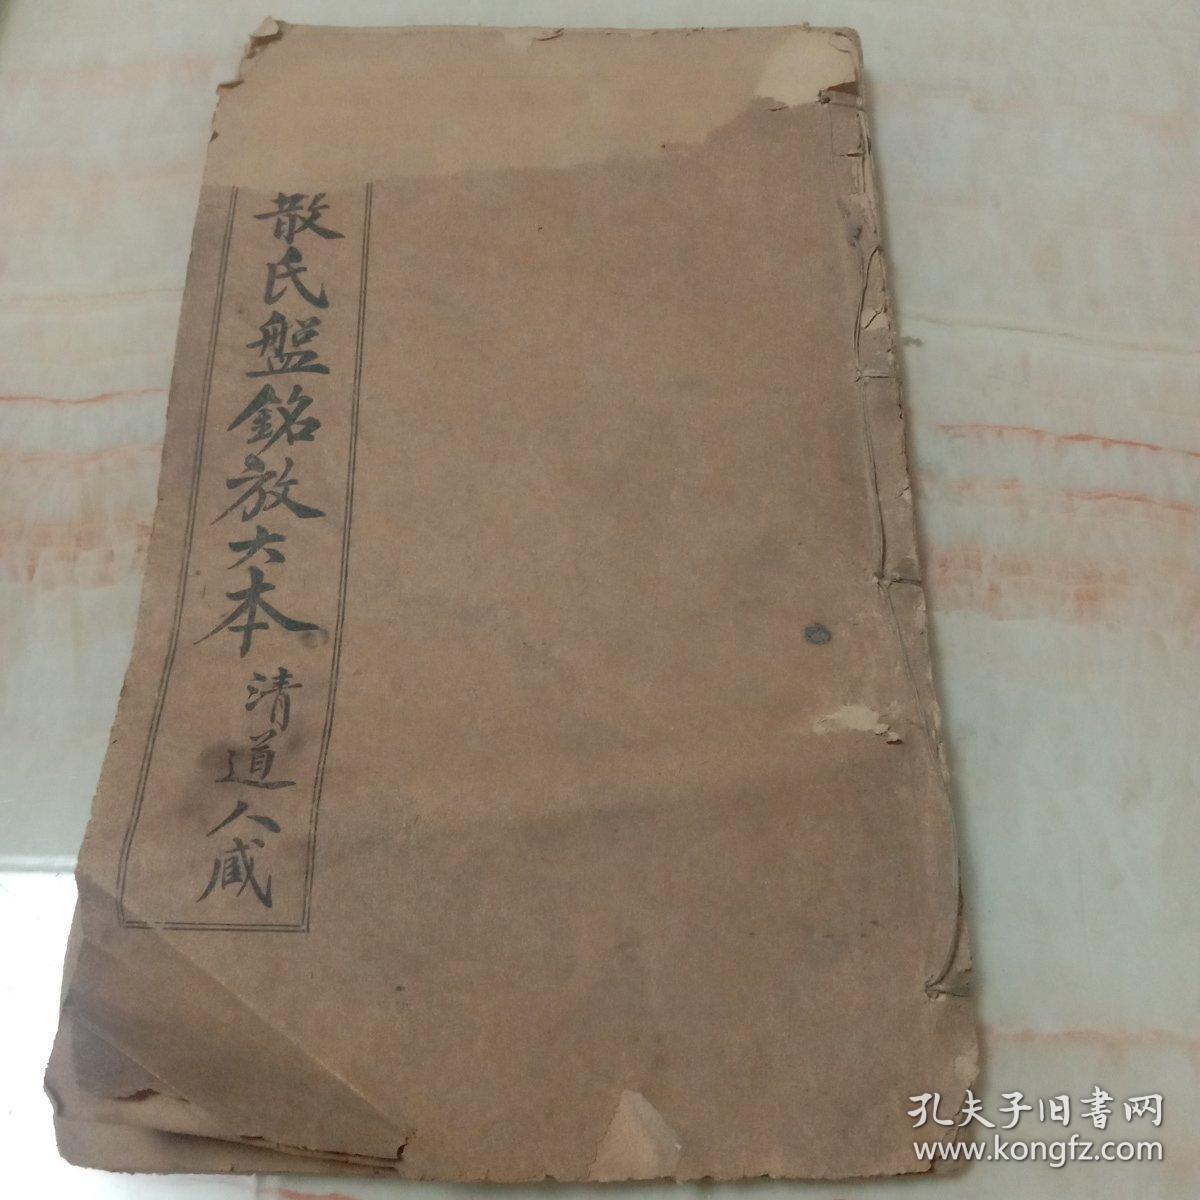 散氏盤銘放大本 清道人臧
孔夫子旧書网
www.kongfz.com